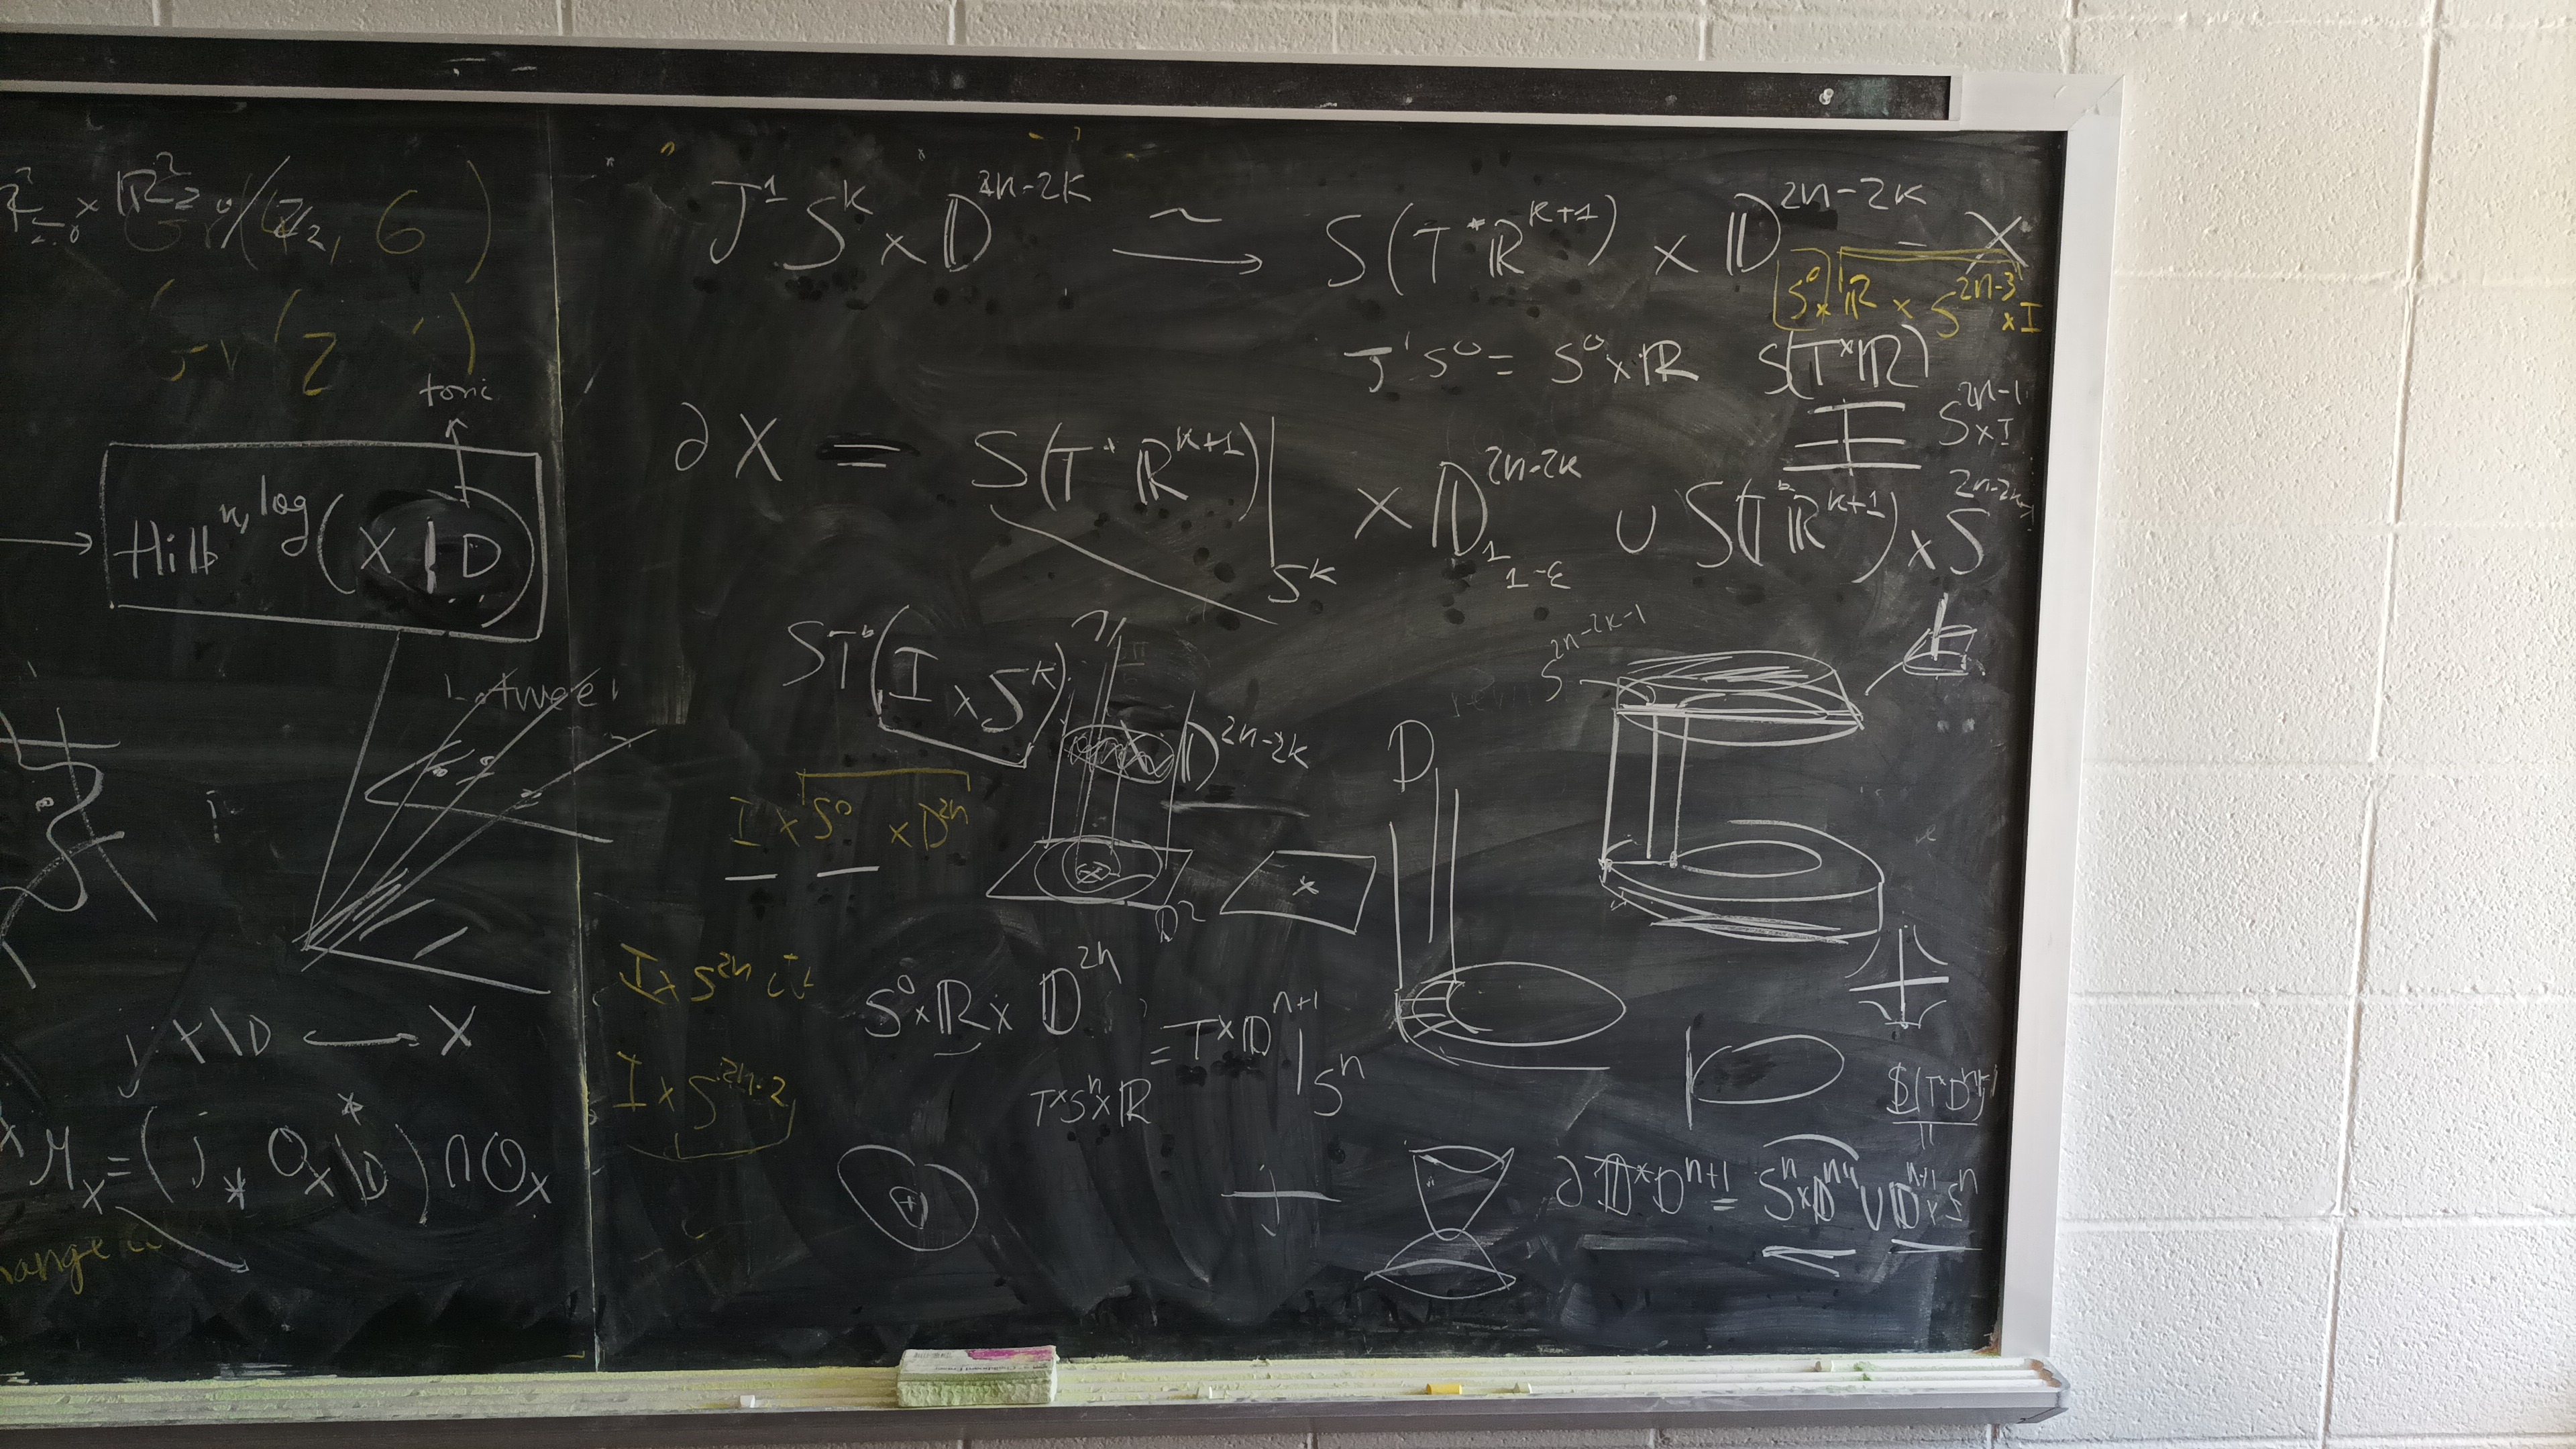 toric
Hilb^{n, log}(X | D)
j: X\D ⟶ X
M_X = (j_* O^*_{X\D}) ∩ O_X
J^1 S^k × D^{2n-2k} ⟶^∼ S(T^*R^{k+1}) × D^{2n-2k} = X
S^0 × R × S^{2n-3} × I
J^1 S^0 = S^0 × R S(T^*R)
S^{2n-1} × I
∂X = S(T^*R^{k+1})|_{S^k} × D^{2n-2k}_{1 1-ε} ∪ S(T^*R^{k+1}) × S^{2n-2k-1}
ST^*(I × S^k)
S^{2n-2k-1}
D^{2n-2k}
D
I × S^0 × D^{2n}
D^2
I × S^{2n}
S^0 × R × D^{2n}
= T^*D^{n+1}|_{S^n}
T^*S^n × R
I × S^{2n-2}
∂ D^*D^{n+1} = S^n × D^{n+1} ∪ D^{n+1} × S^n